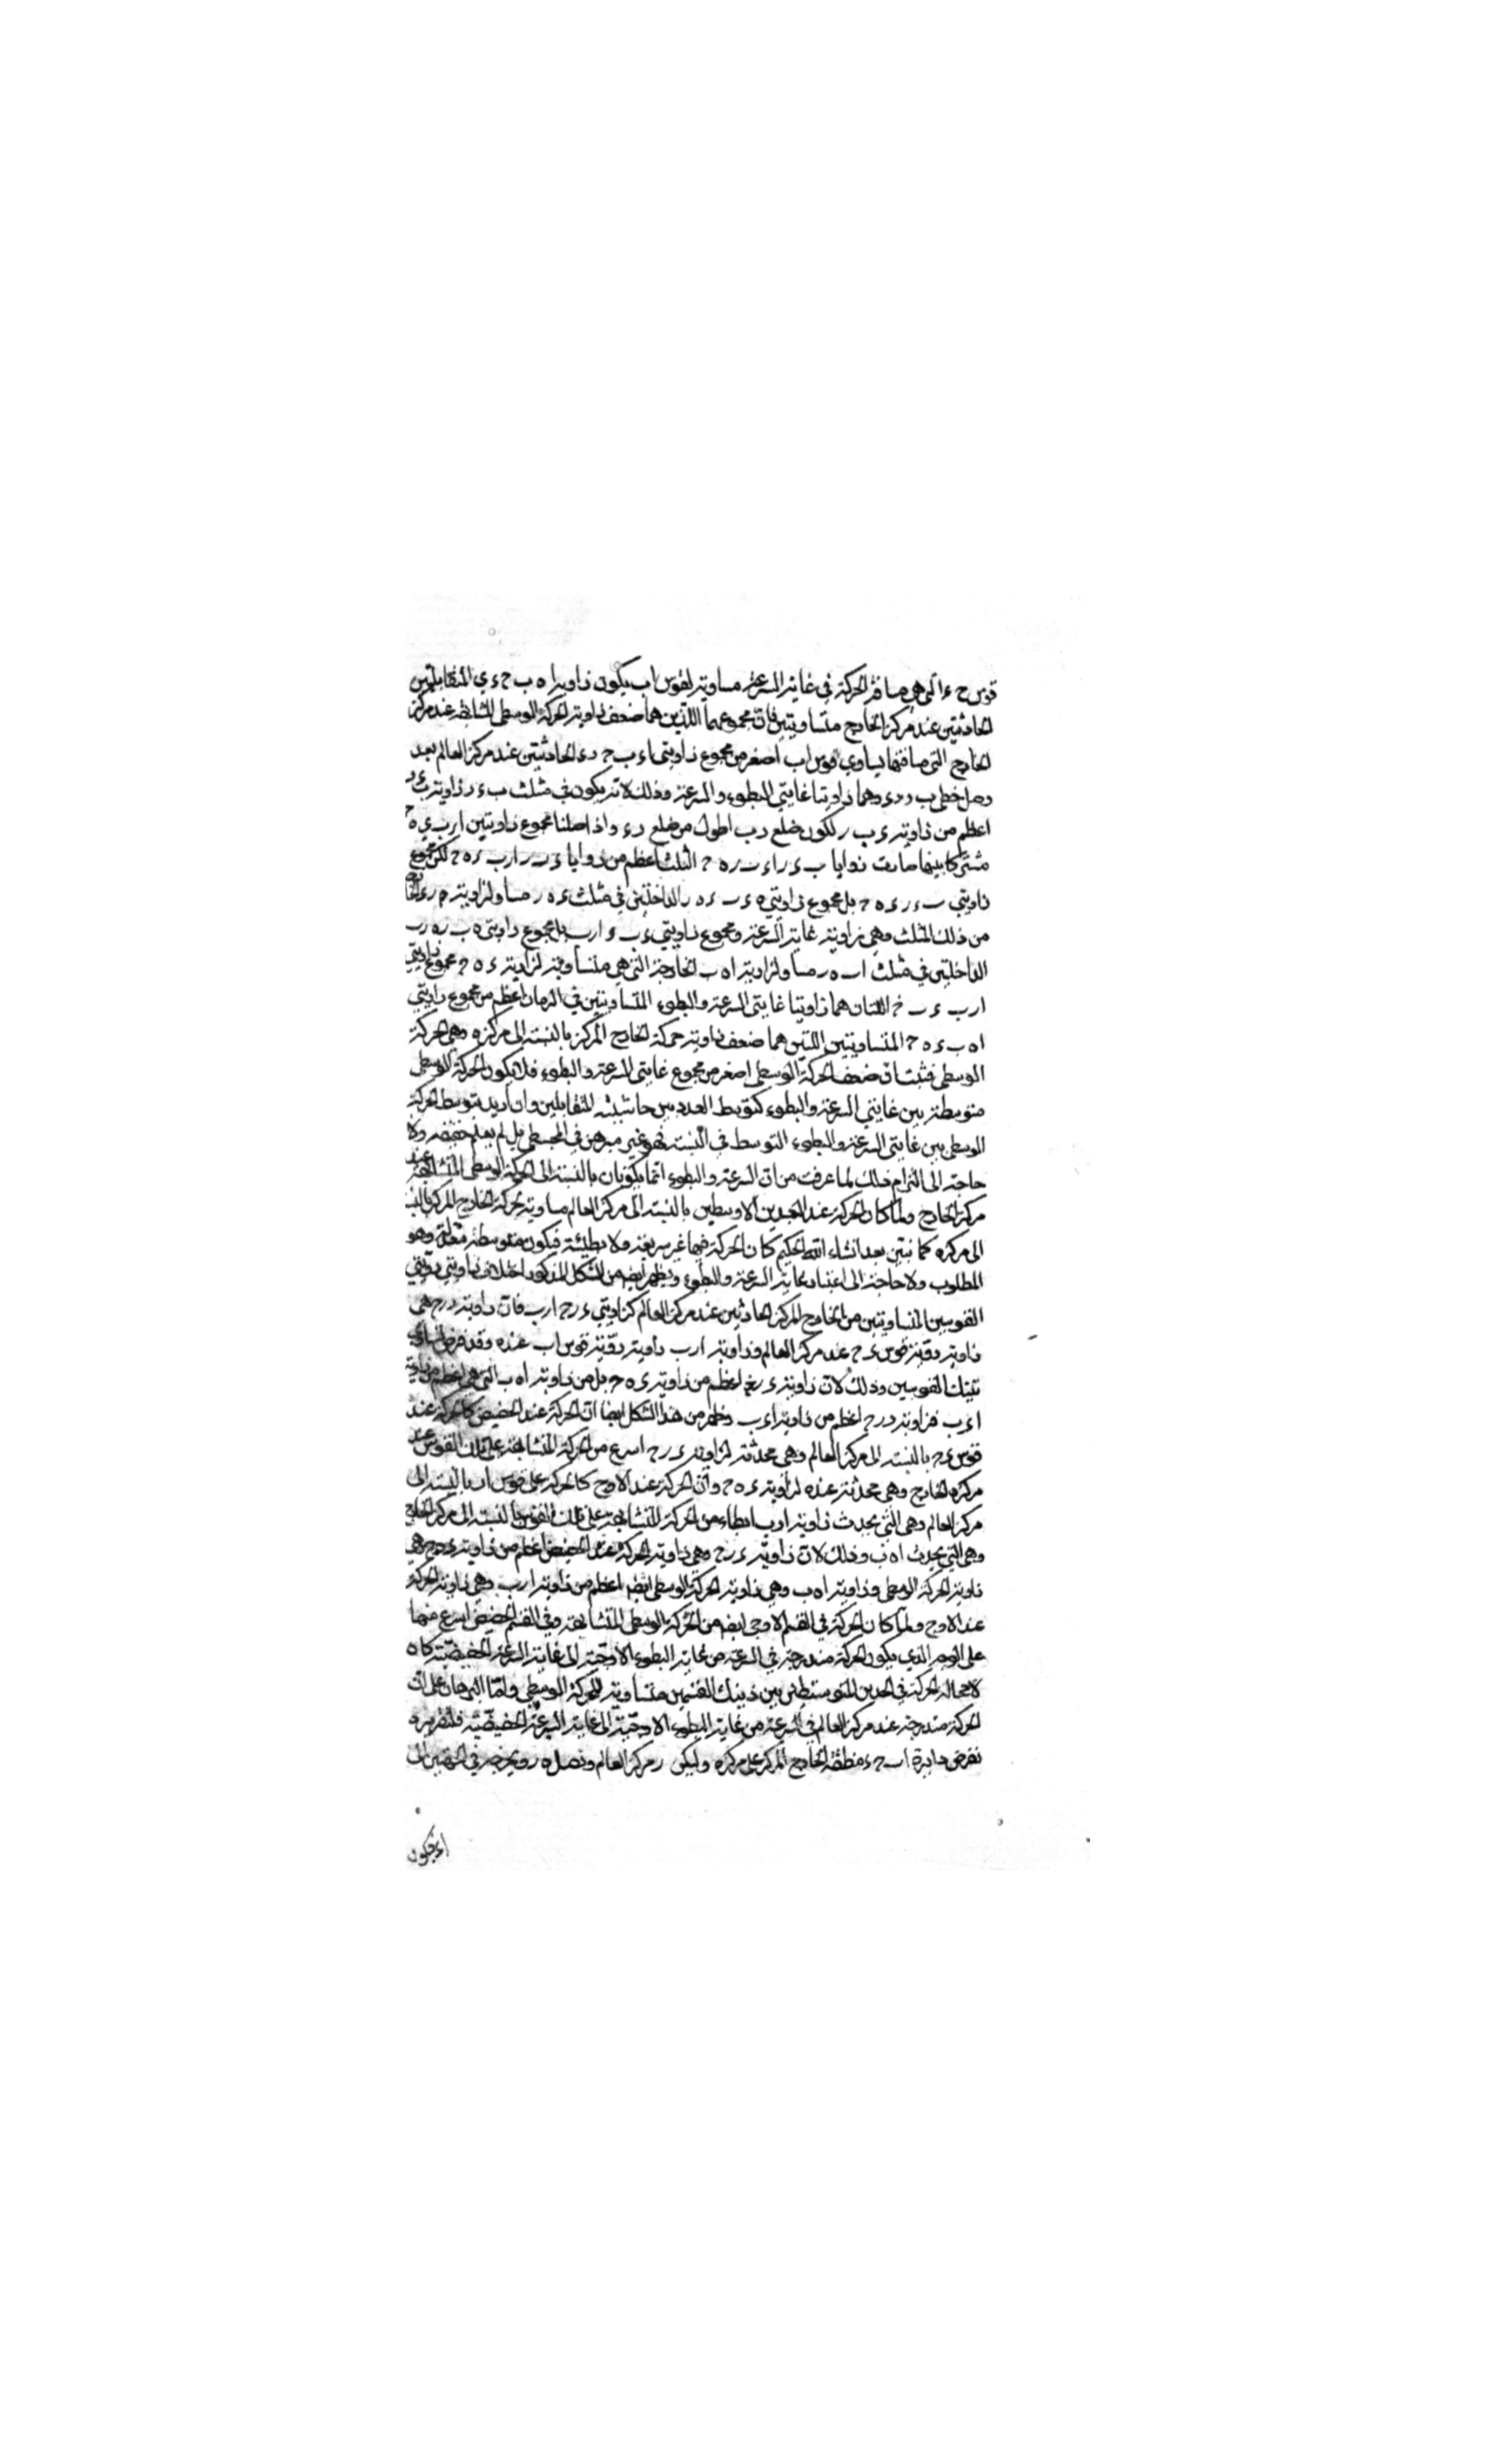 قوس ح ء التي هي مسافة الحركة في غاية السرعة مساوية لقوس اب يكون زاويتا ا ه ب ح ء ي المتقابلتين
الحادثتين عند مركز الخارج متساويتين فان مجموعهما اللتين هما ضعف زاوية الحركة الوسطى المتشابهة عند مركز
الخارج التي مسافتها يساوي قوس اب اصغر من مجموع زاويتي ا ء ب ح د ء الحادثتين عند مركز العالم بعد
وصل خطي ب د د ء وهما زاويتا غايتي البطوء والسرعة وذلك لانه يكون في مثلث ب ء ر زاوية
اعظم من زاوية ء ب ر لكون ضلع د ب اطول من ضلع د ء واذا جعلنا مجموع زاويتين ا ر ب ء ه ح
مشتركا بينهما صارت زوايا ب ء ر ا ء ب ر ه ح الثلث اعظم من زوايا ء ب ر ا ر ب ء ه ح لكن مجموع
زاويتي ب ء ر ء ه ح بل مجموع زاويتي ه ء ب ء ه ر الداخلتين في مثلث ء ه ر مساو لزاوية ح ر ء
من ذلك المثلث وهي زاوية غاية السرعة ومجموع زاويتي ء ب ر ا ر ب بل مجموع زاويتي ه ب ر ه ر ب
الداخلتين في مثلث ب ه ر مساو لزاوية ا ه ب الخارجة التي هي متساوية لزاوية ء ه ح مجموع زاويتي
ا ر ب ء ر ح اللتان هما زاويتا غايتي السرعة والبطوء المتساويتين في الزمان اعظم من مجموع زاويتي
ا ه ب ء ه ح المتساويتين اللتين هما ضعف زاوية حركة الخارج المركز بالنسبة الى مركزه وهي الحركة
الوسطى فثبت ان ضعف الحركة الوسطى اصغر من مجموع غايتي السرعة والبطوء فلا يكون الحركة الوسطى
متوسطة بين غايتي السرعة والبطوء كتوسط العدد بين حاشيتيه المتقابلتين وان اريد بتوسط الحركة
الوسطى بين غايتي السرعة والبطوء التوسط في النسبة فهو غير مبرهن في المجسطي بل لم يعلم حقيقته ولا
حاجة الى التزام ذلك لما عرفت من ان السرعة والبطوء انما يكونان بالنسبة الى الحركة الوسطى المتشابهة عند
مركز الخارج ولما كان الحركة عند البعدين الاوسطين بالنسبة الى مركز العالم مساوية لحركة الخارج المركز بالنسبة
الى مركزه كما نبين بعد انشاء الله الحكيم كان الحركة فيهما غير سريعة ولا بطيئة فيكون متوسطة معتدلة وهو
المطلوب ولا حاجة الى اعتبار غاية السرعة والبطوء ويظهر ايضا من الشكل المذكور اختلاف زاويتي رؤيتي
القوسين المتساويتين من الخارج المركز الحادثتين عند مركز العالم كزاويتي ء ر ح ا ر ب فان زاوية د ر ح هي
زاوية رؤية قوس ء ح عند مركز العالم وزاوية ا ر ب زاوية رؤية قوس اب عنده وقد فرض تساوي
تينك القوسين وذلك لان زاوية ء ر ح اعظم من زاوية ء ه ح بل من زاوية ا ه ب التي هي اعظم من زاوية
ا ء ب فزاوية د ر ح اعظم من زاوية ا ء ب وظهر من هذا الشكل ايضا ان الحركة عند الحضيض كالحركة عند
قوس ء ح بالنسبة الى مركز العالم وهي محدثة لزاوية ء ر ح اسرع من الحركة المتشابهة على تلك القوس عند
مركزه الخارج وهي محدثة عنده لزاوية ء ه ح وان الحركة عند الاوج كالحركة على قوس اب بالنسبة الى
مركز العالم وهي التي يحدث زاوية ا ر ب ابطاء من الحركة المتشابهة على تلك القوس بالنسبة الى مركز الخارج
وهي التي يحدث ا ه ب وذلك لان زاوية ء ر ح وهي زاوية الحركة عند الحضيض اعظم من زاوية ء ه ح وهي
زاوية الحركة الوسطى وزاوية ا ه ب وهي زاوية الحركة الوسطى ايضا اعظم من زاوية ا ر ب وهي زاوية الحركة
عند الاوج ولما كان الحركة في القسم الاوجي ابطء من الحركة الوسطى المتشابهة وفي القسم الحضيضي اسرع منها
على الوجه الذي يكون الحركة متدرجة في السرعة من غاية البطوء الاوجية الى غاية السرعة الحضيضية كان
لا محالة الحركة في الحدين المتوسطين بين ذينك القسمين متساوية للحركة الوسطى واما البرهان على ان
الحركة متدرجة عند مركز العالم في السرعة من غاية البطوء الاوجية الى غاية السرعة الحضيضية فلتقريره
نفرض دايرة ا ب ح ء منطقة الخارج المركز على مركز ه وليكن ر مركز العالم ونصل ه ر ونخرجه في الجهتين الى